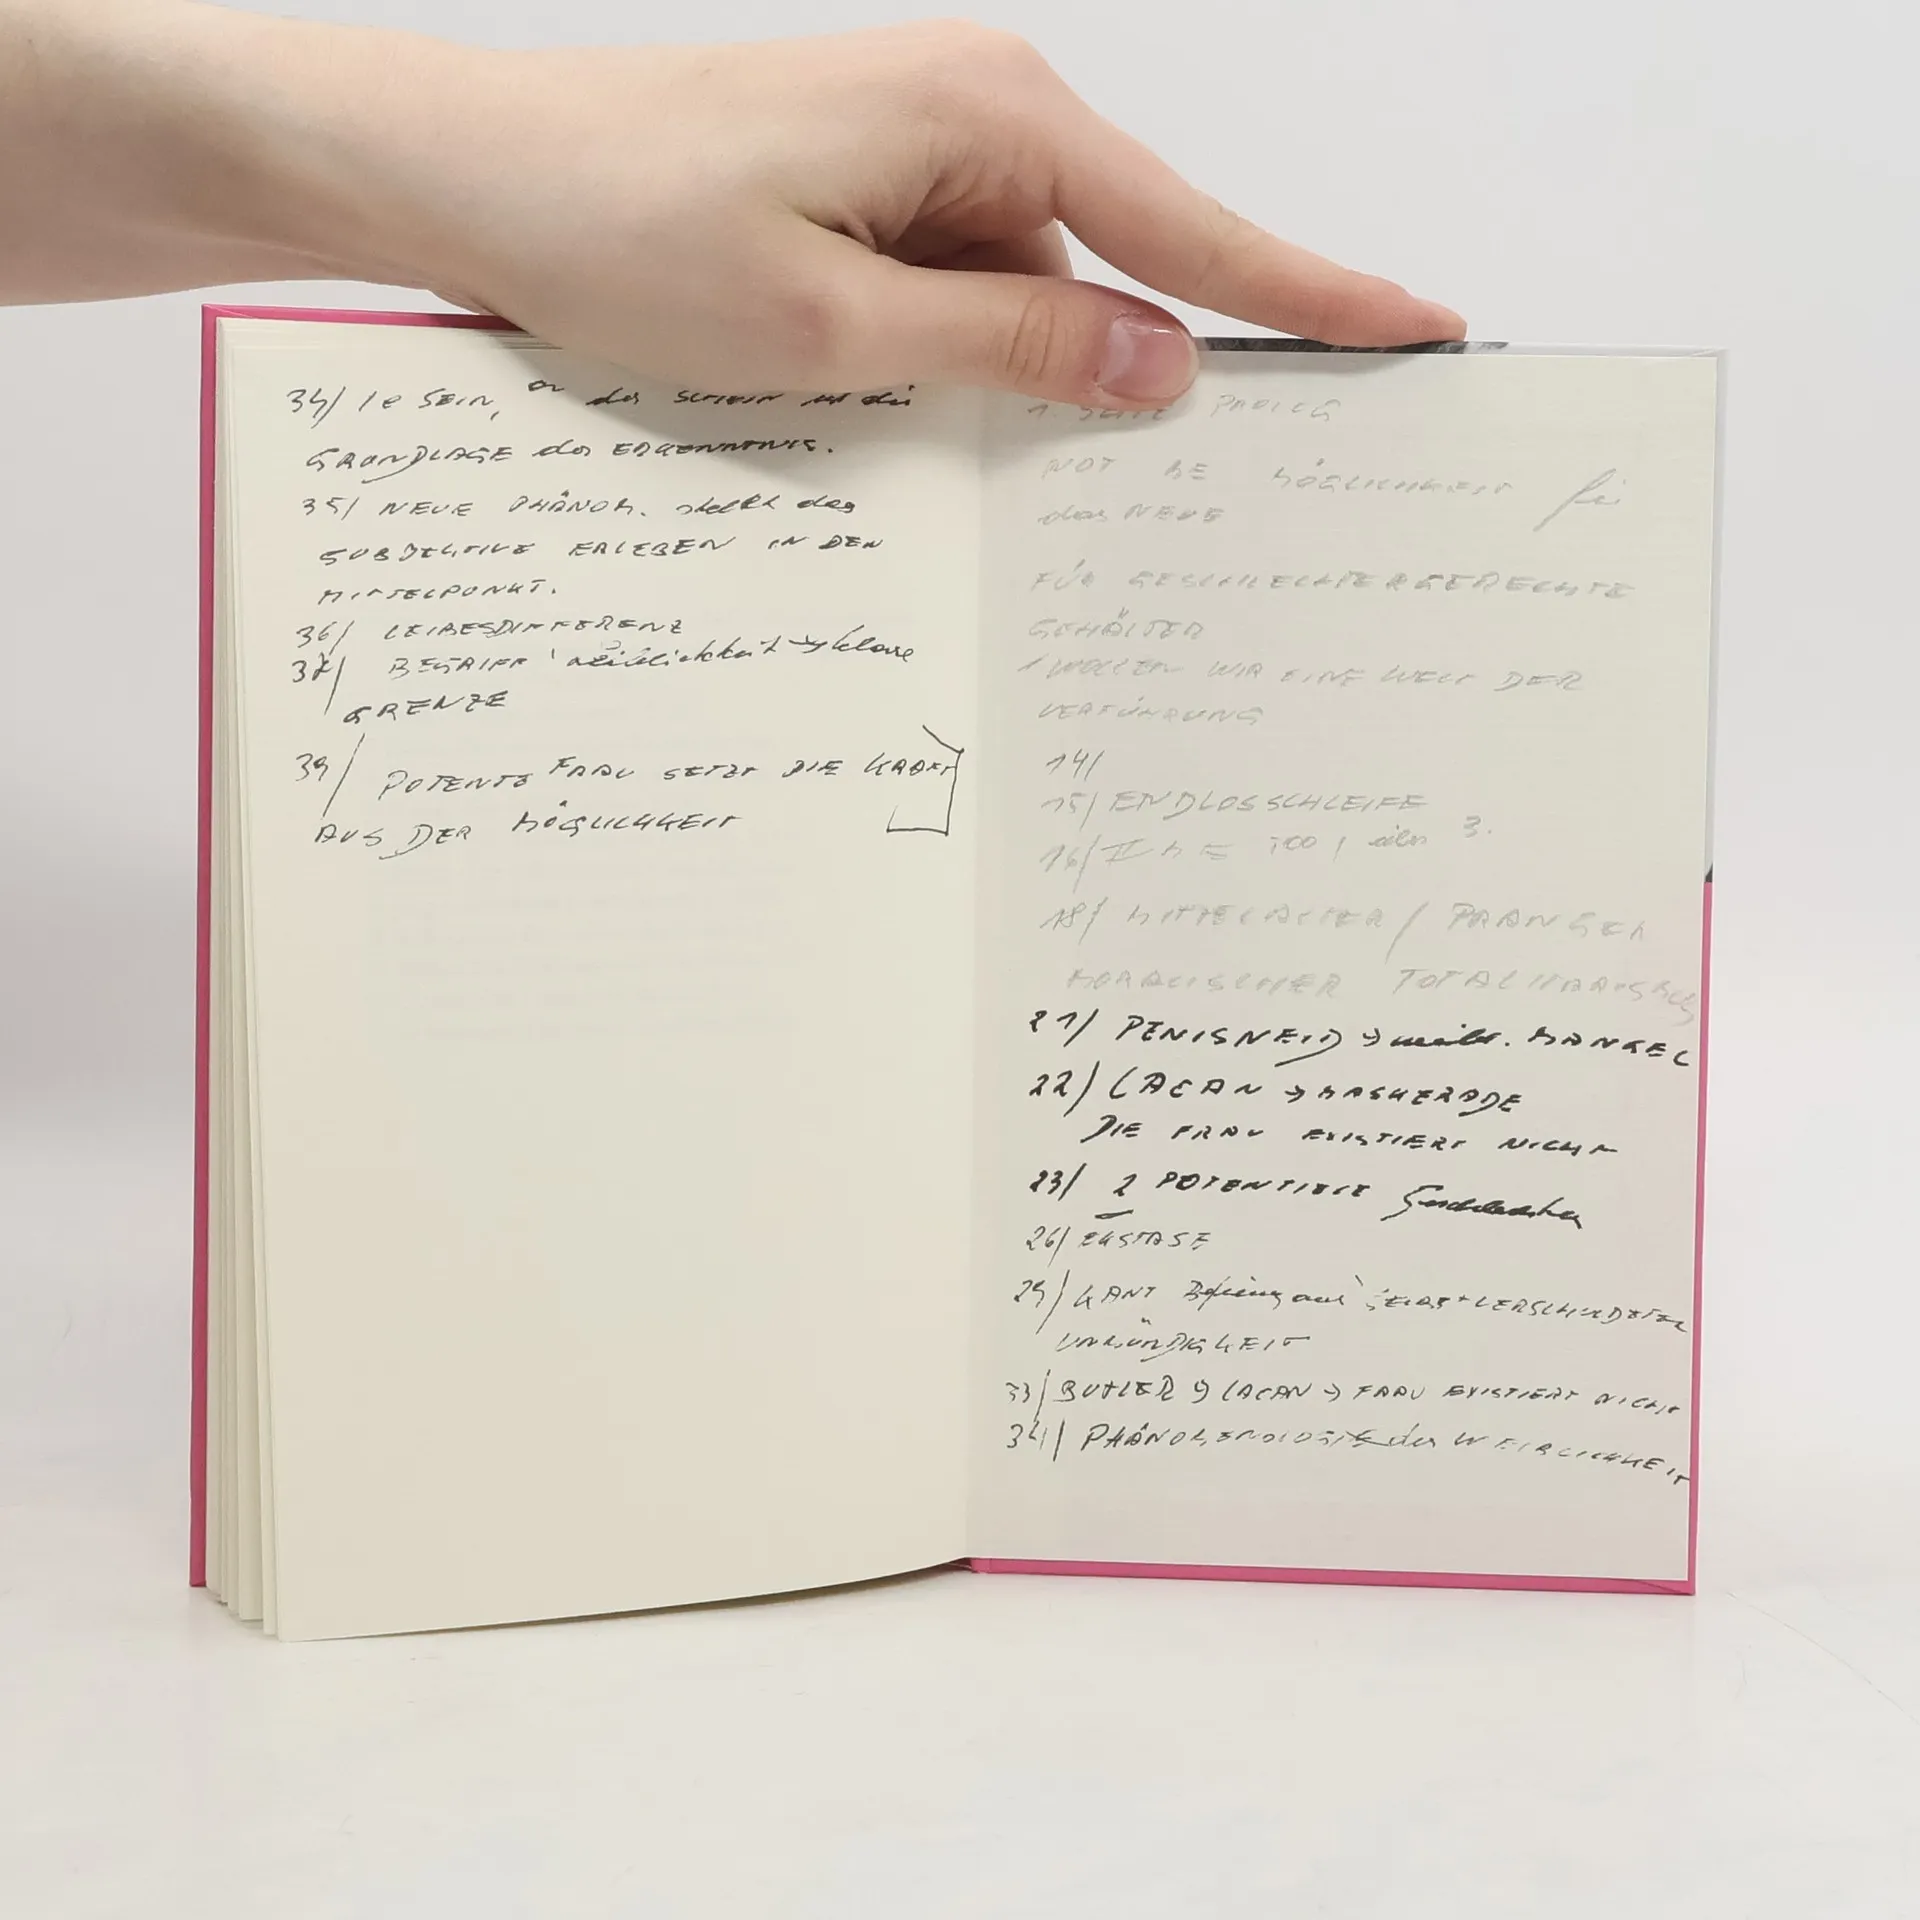 34/ SEIN, der SCHEIN ist die
GRUNDLAGE der ERKENNTNIS.
35/ NEUE PHÄNOM. stellt das
SUBJEKTIVE ERLEBEN IN DEN
MITTELPUNKT.
36/ LEIBESDIFFERENZ
37/ BEGRIFF Weiblichkeit → klare
GRENZE
39/ POTENTE FRAU SETZT DIE KRAFT
AUS DER MÖGLICHKEIT
1. SEITE PROLOG
NOT ME MÖGLICHKEIT für
das NEUE
FÜR GESCHLECHTERGERECHTE
GEHÄLTER
WOLLEN WIR EINE WELT DER
VERFÜHRUNG
14/
15/ ENDLOSSCHLEIFE
16/ 3.
18/ MITTELALTER / PRANGER
MORALISCHER
21/ PENISNEID → weibl. MANGEL
22/ LACAN → MASKERADE
DIE FRAU EXISTIERT NICHT
23/ 2 POTENTIELLE Geschlechter
26/ EKSTASE
29/ KANT Befreiung aus SELBSTVERSCHULDETER
UNMÜNDIGKEIT
33/ BUTLER → LACAN → FRAU EXISTIERT NICHT
34/ PHÄNOMENOLOGIE der WEIBLICHKEIT